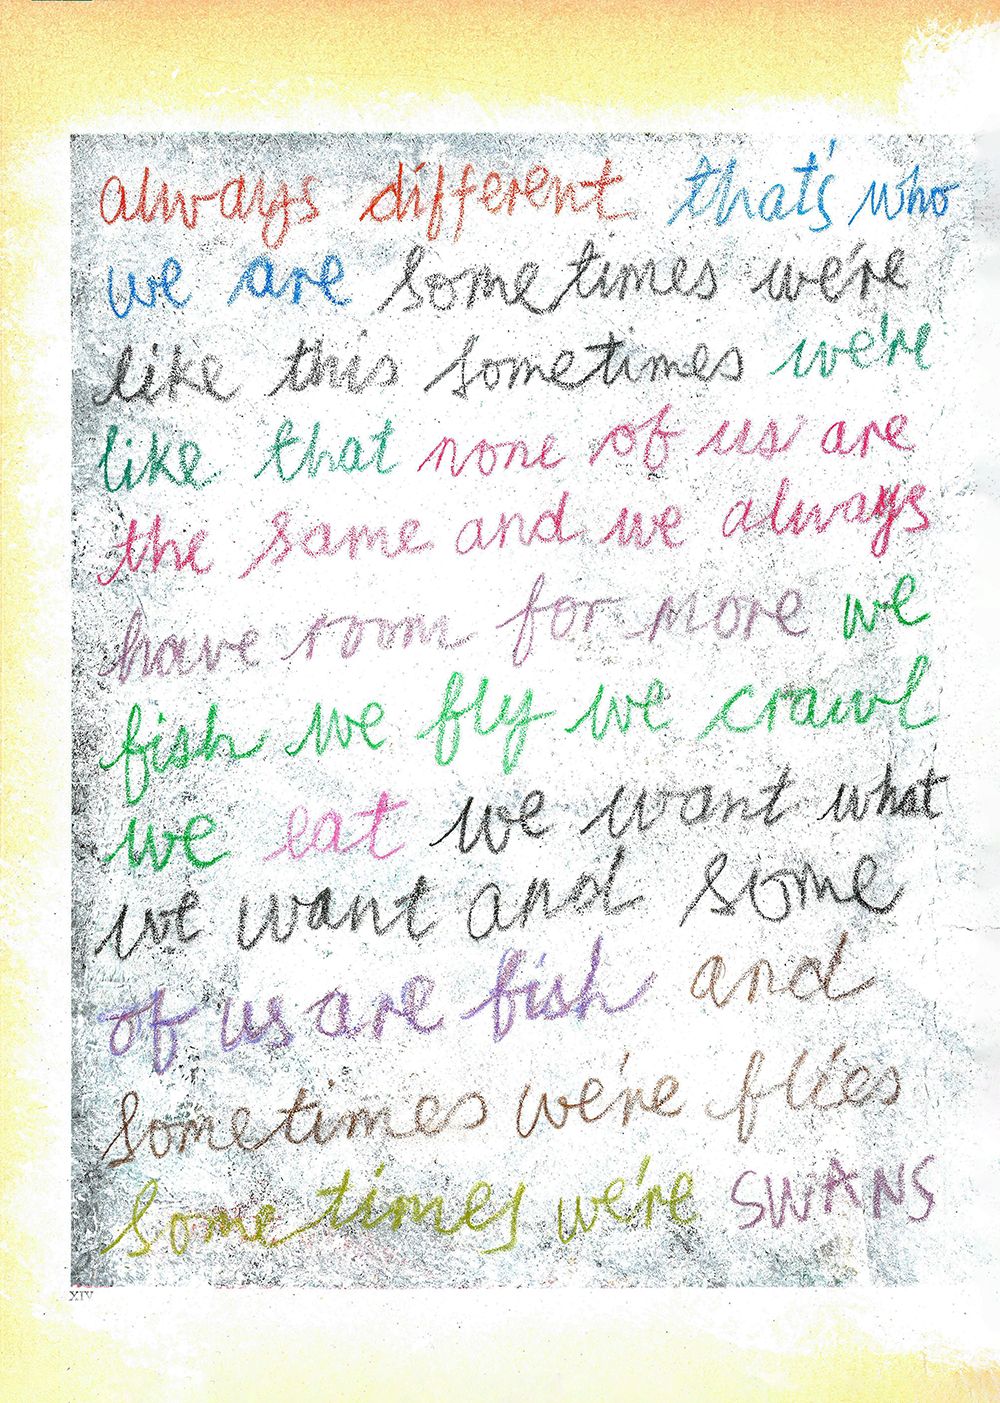 always different that's who
we are sometimes we're
like this sometimes we're
like that none of us are
the same and we always
have room for more we
fish we fly we crawl
we eat we want what
we want and some
of us are fish and
sometimes we're flies
sometimes we're SWANS
XIV